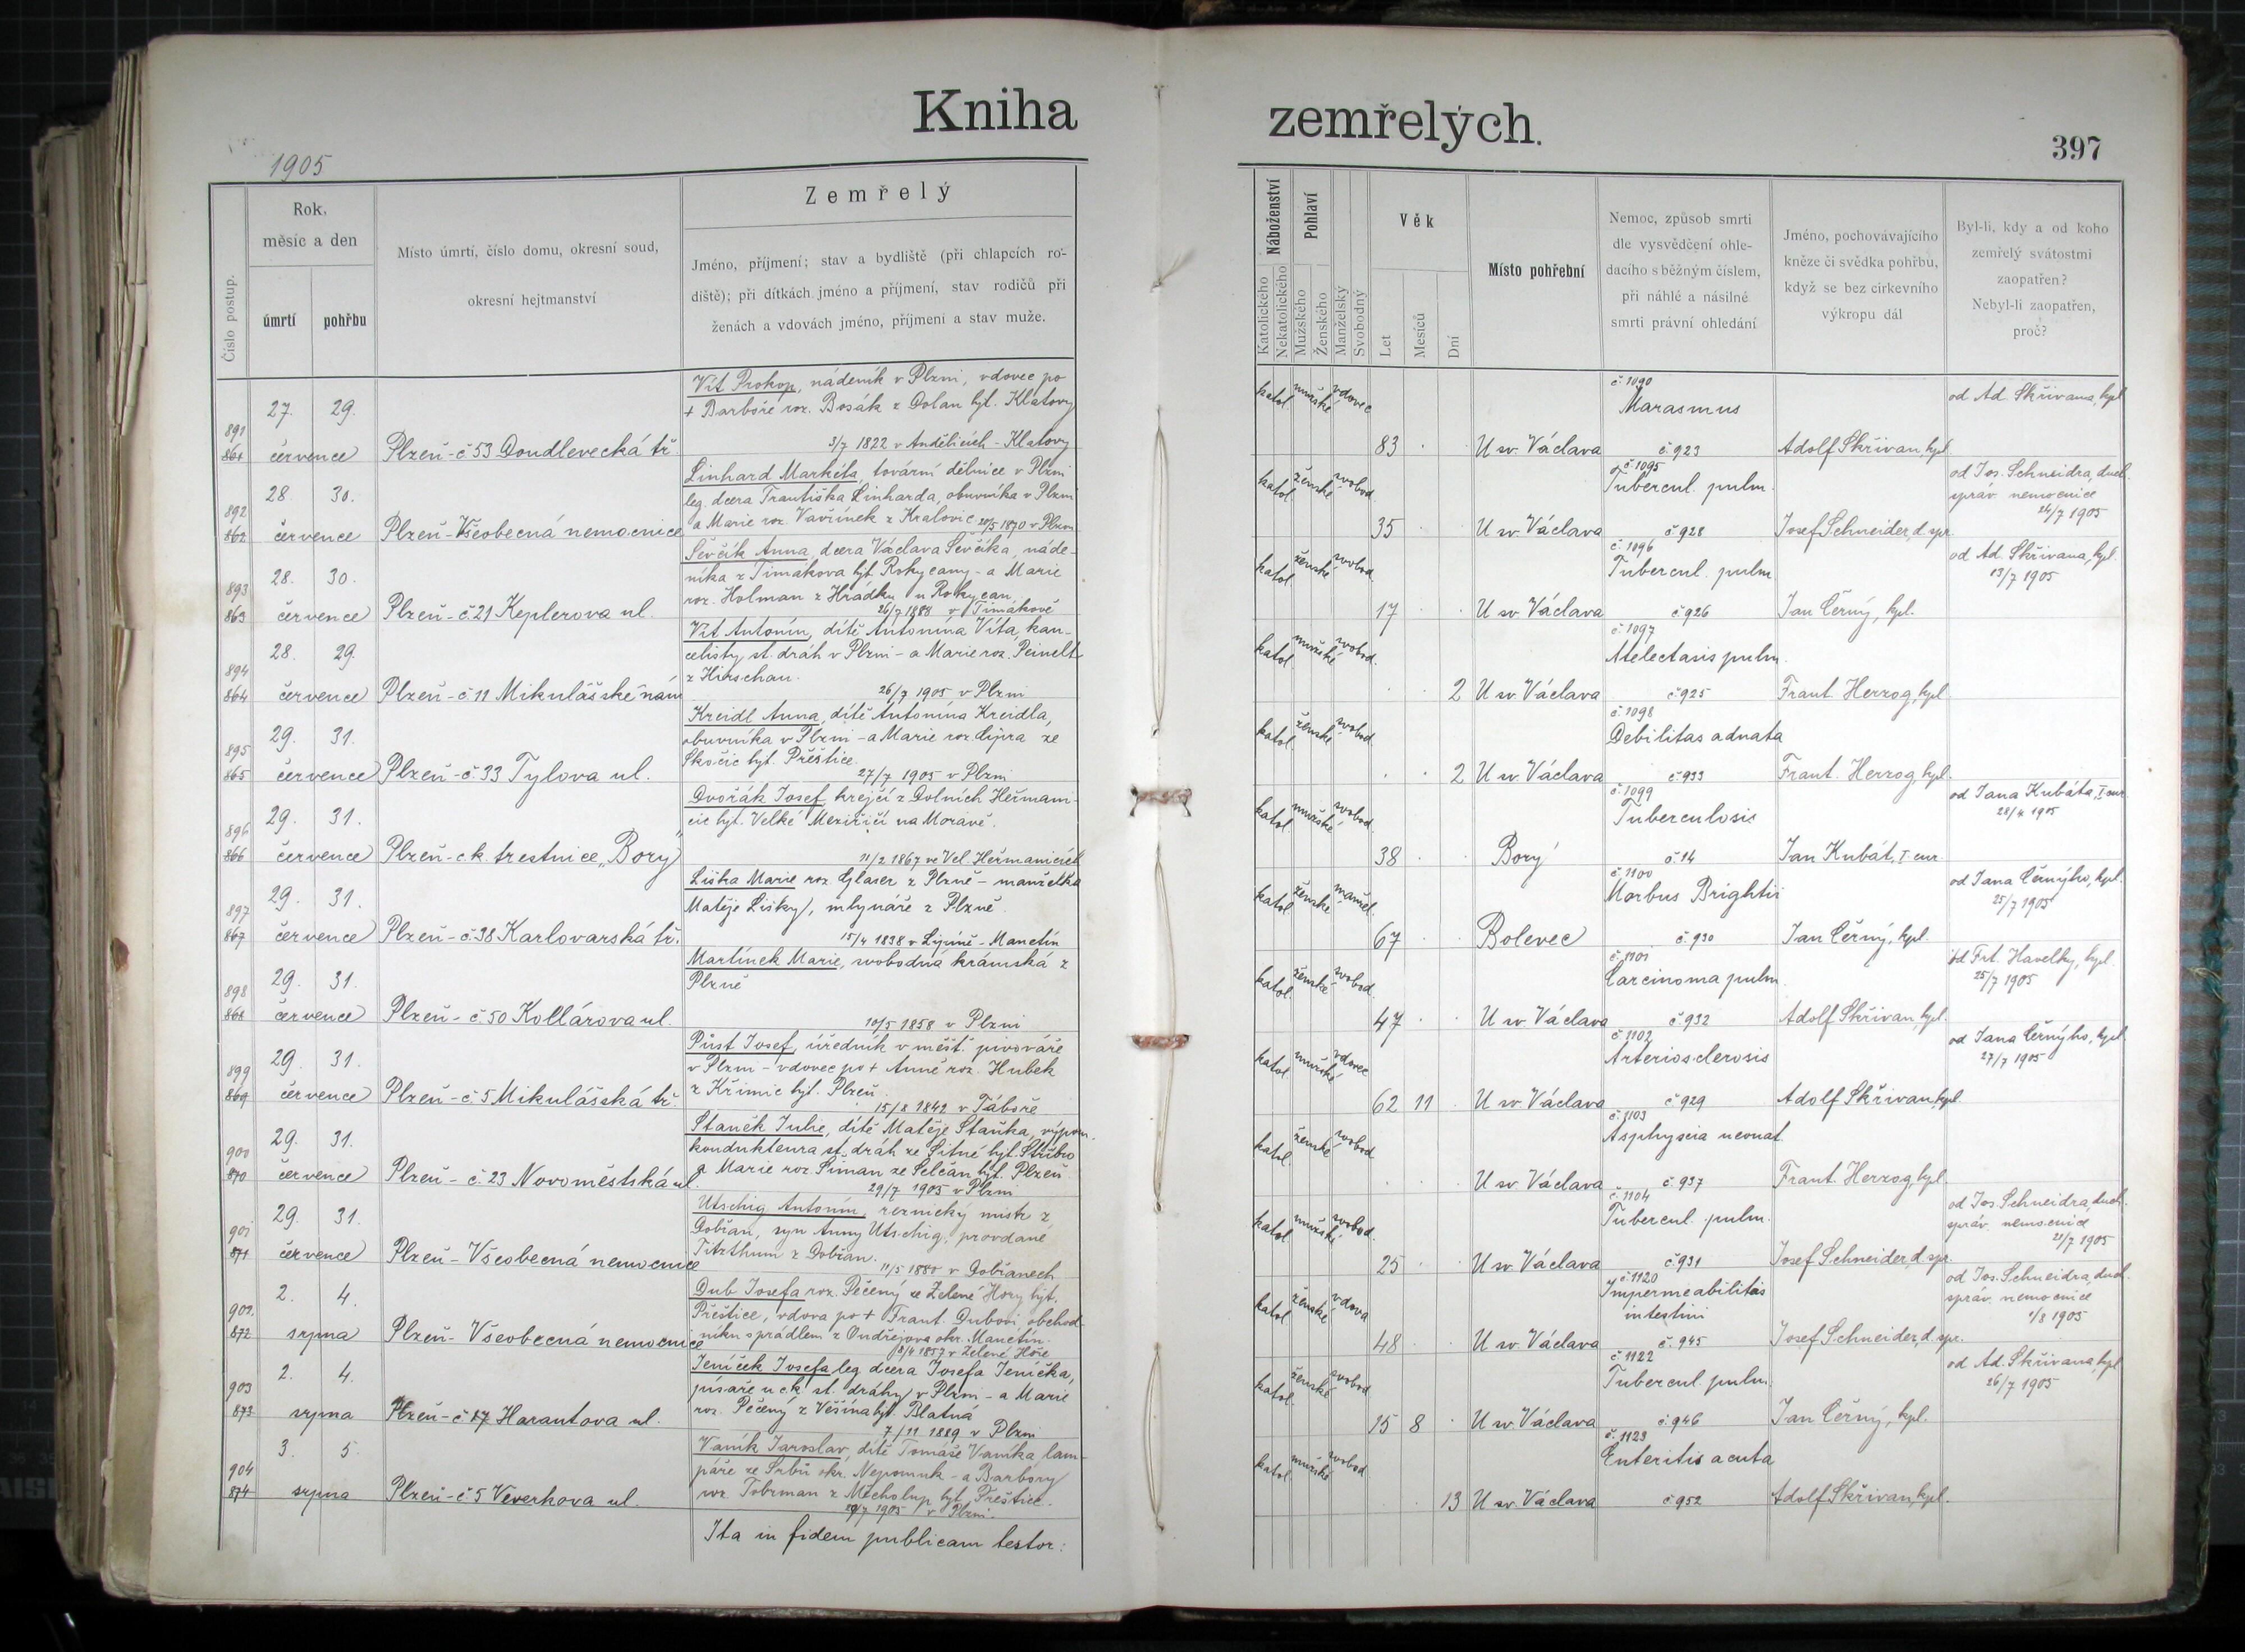 Kniha
zemřelých.
397
1905
Číslo postup.
Rok,
měsíc a den
úmrtí
pohřbu
Místo úmrtí, číslo domu, okresní soud,
okresní hejtmanství
Zemřelý
Jméno, příjmení; stav a bydliště (při chlapcích ro-
diště); při dítkách jméno a příjmení, stav rodičů při
ženách a vdovách jméno, příjmení a stav muže.
Náboženství
Katolického
Nekatolického
Pohlaví
Mužského
Ženského
Manželský
Svobodný
Věk
Let
Měsíců
Dní
Místo pohřební
Nemoc, způsob smrti
dle vysvědčení ohle-
dacího s běžným číslem,
při náhlé a násilné
smrti právní ohledání
Jméno, pochovávajícího
kněze či svědka pohřbu,
když se bez církevního
výkropu dál
Byl-li, kdy a od koho
zemřelý svátostmi
zaopatřen?
Nebyl-li zaopatřen,
proč?
891
861
27. 29.
července
Plzeň - č 53 Doudlevecká tř.
Vít Prokop, nádeník v Plzni, vdovec po
+ Barboře roz. Bosák z Dolan hjt. Klatovy
3/7 1822 v Andělicích - Klatovy
katol. mužské vdovec
83
U sv. Václava
č. 1090
Marasmus
č. 923
Adolf Skřivan, kpl.
od Ad. Skřivana, kpl.
892
862
28. 30.
července
Plzeň - Všeobecná nemocnice
Linhard Markéta, tovární dělnice v Plzni
leg. dcera Františka Linharda, obuvníka v Plzni
a Marie roz. Vavřínek z Kralovic 28/5 1870 v Plzni
katol. ženské svobod.
35
U sv. Václava
č. 1095
Tubercul. pulm.
č. 928
Josef Schneider, d. spr.
od Jos. Schneidra, duch.
správ. nemocnice
24/7 1905
893
863
28. 30.
července
Plzeň - č. 21 Keplerova ul.
Ševčík Anna, dcera Václava Ševčíka, náde-
níka z Timákova hjt. Rokycany - a Marie
roz. Holman z Hrádku u Rokycan.
26/7 1888 v Timákově
katol. ženské svobod.
17
U sv. Václava
č. 1096
Tubercul. pulm.
č. 926
Jan Černý, kpl.
od Ad. Skřivana, kpl.
13/7 1905
894
864
28. 29.
července
Plzeň - č 11 Mikulášské nám
Vít Antonín, dítě Antonína Víta, kan-
celisty st. drah v Plzni - a Marie roz. Peinelt
z Hirschau.
26/7 1905 v Plzni
katol. mužské svobod.
2
U sv. Václava
č. 1097
Atelectasis pulm.
č. 925
Frant. Herzog, kpl.
895
865
29. 31.
července
Plzeň - č. 33 Tylova ul.
Kreidl Anna, dítě Antonína Kreidla,
obuvníka v Plzni - a Marie roz. ze
Skočic hjt. Přeštice.
27/7 1905 v Plzni
katol. ženské svobod.
2
U sv. Václava
č. 1098
Debilitas adnata
č. 933
Frant. Herzog, kpl.
896
866
29. 31.
července
Plzeň - ck. trestnice „Bory"
Dvořák Josef, krejčí z Dolních Heřmani-
cic hjt. Velké Meziřičí na Moravě.
11/2 1867 ve Vel. Heřmanicích
katol. mužské svobod.
38
Bory
č. 1099
Tuberculosis
č. 14
Jan Kubát, I. cur.
od Jana Kubáta, I. cur.
28/4 1905
897
867
29. 31.
července
Plzeň - č. 38 Karlovarská tř.
Liška Marie roz. Glaser z Plzně - manželka
Matěje Lišky, mlynáře z Plzně.
15/4 1838 v Lipině - Manetín
katol. ženské manžel.
67
Bolevec
č. 1100
Morbus Brightii
č. 930
Jan Černý, kpl.
od Jana Černýho, kpl.
25/7 1905
898
868
29. 31.
července
Plzeň - č. 50 Kollárova ul.
Martínek Marie, svobodná krámská z
Plzně
10/5 1858 v Plzni
katol. ženské svobod.
47
U sv. Václava
č. 1101
Carcinoma pulm.
č. 932
Adolf Skřivan, kpl.
od Frt. Havelky, kpl.
25/7 1905
899
869
29. 31.
července
Plzeň - č. 5 Mikulášská tř.
Půst Josef, úředník v měšť. pivováře
v Plzni - vdovec po + Anně roz. Hubek
z Křimic hjt. Plzeň.
15/8 1842 v Táboře
katol. mužské vdovec
62 11
U sv. Václava
č. 1102
Arteriosclerosis
č. 929
Adolf Skřivan, kpl.
od Jana Černýho, kpl.
27/7 1905
900
870
29. 31.
července
Plzeň - č. 23 Novoměstská ul.
Staněk Julie, dítě Matěje Staňka, výpom.
kondukteura st. drah ze Sitné hjt. Stříbro
a Marie roz. Šiman ze Selčan hjt. Plzeň
29/7 1905 v Plzni
katol. ženské svobod
U sv. Václava
č. 1103
Asphyscia neonat.
č. 937
Frant. Herzog, kpl.
901
871
29. 31.
července
Plzeň - Všeobecná nemocnice
Utschig Antonín, řeznický mistr z
Dobřan, syn Anny Utschig, provdané
Titzthum z Dobřan.
11/5 1880 v Dobřanech
katol. mužské svobod.
25
U sv. Václava
č. 1104
Tubercul. pulm.
č. 931
Josef Schneider d. spr.
od Jos. Schneidra, duch.
správ. nemocnice
21/7 1905
902.
872
2. 4.
srpna
Plzeň - Všeobecná nemocnice
Dub Josefa roz. Pečený ze Zelené Hory hjt.
Přeštice, vdova po + Frant. Dubovi, obchod
níku s prádlem z Ondřejova okr. Manětín.
1857 v Zelené Hoře
katol. ženské vdova
48
U sv. Václava
č. 1120
Impermeabilitas
intestini
č. 945
Josef Schneider, d. spr.
od Jos. Schneidra, duch.
správ. nemocnice
1/8 1905
903
873
2. 4.
srpna
Plzeň - č. 17 Harantova ul.
Jeníček Josefa leg. dcera Josefa Jeníčka,
písaře u ck. st. dráhy v Plzni - a Marie
roz. Pečený z Věšína hjt. Blatná
7/11 1889 v Plzni
katol. ženské svobod
15 8
U sv. Václava
č. 1122
Tubercul. pulm.
č. 946
Jan Černý, kpl.
od Ad. Skřivana, kpl.
26/7 1905
904
874
3. 5.
srpna
Plzeň - č 5 Veverkova ul.
Vaník Jaroslav, dítě Tomáše Vaníka lam-
páře ze Srbů okr. Nepomuk - a Barbory
roz. Tobrman z Měcholup hjt. Přeštice.
20/7 1905 v Plzni.
katol. mužské svobod
13
U sv. Václava
č. 1123
Enteritis acuta
č. 952
Adolf Skřivan, kpl.
Ita in fidem publicam testor: